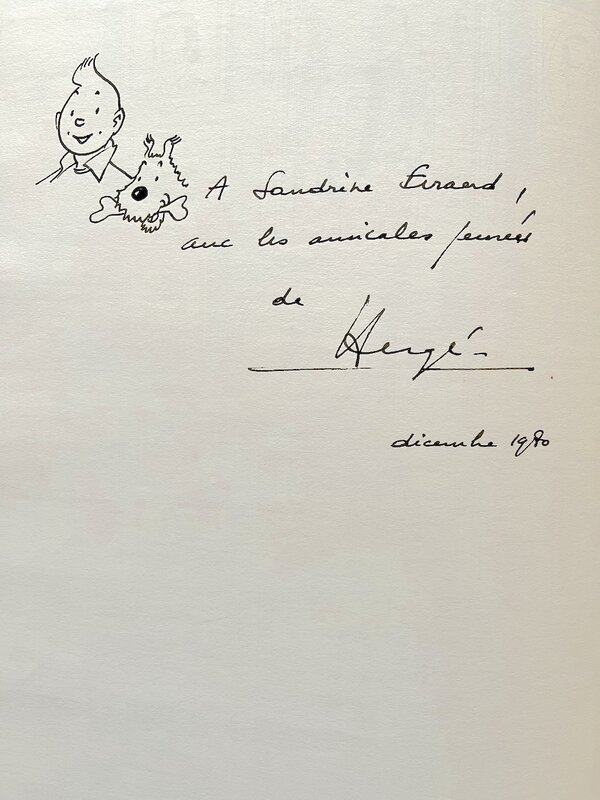 A Sandrine Evraerd,
avec les amicales pensées
de
Hergé
décembre 1980